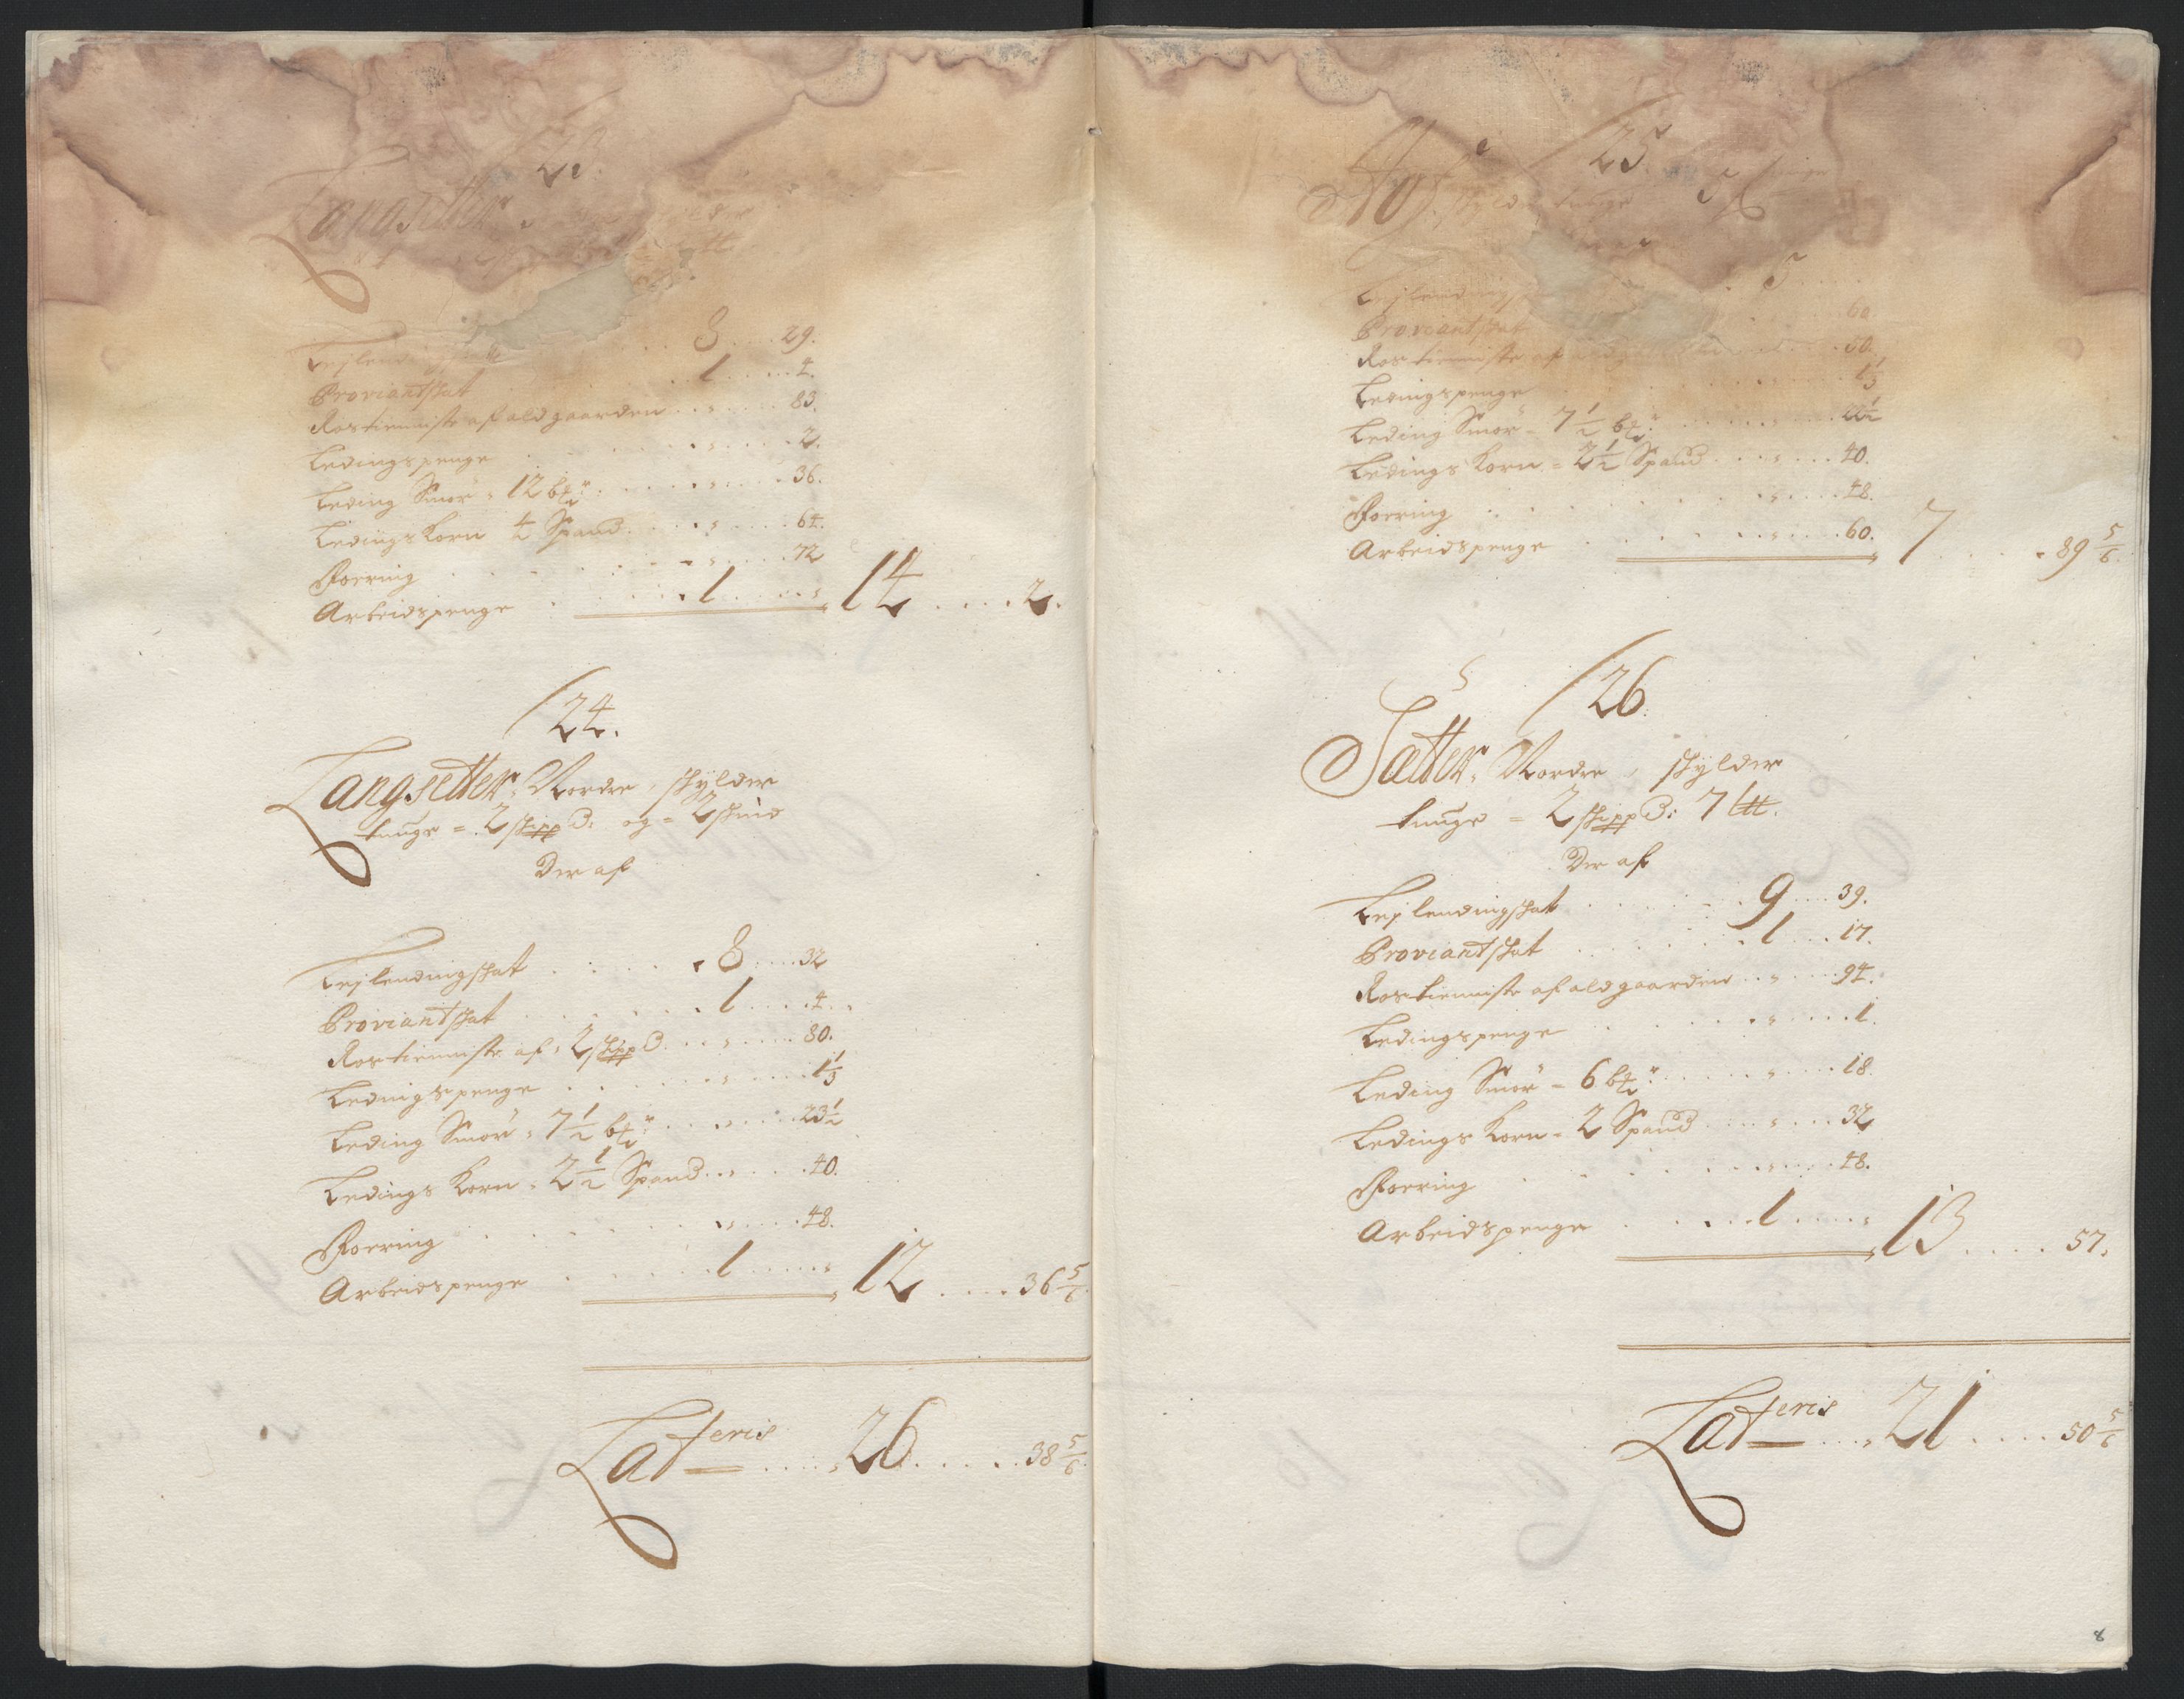 23.
Langsetter
Leylendingskat . . . 8 . . . 29.
Proviantskat . . . 1 . . . 4.
Rostienniste af ald gaarden . . „ . . . 83.
Ledingspenge . . . „ . . . 2.
Leding Smør „ 12 btr: . . . „ . . . 36.
Ledings Korn 4 Spand . . . „ . . . 64.
Foering . . . „ . . . 72
Arbeidspenge . . . 1 . . . „ 14 . . . 2.
24.
Langsetter, Nordre, skylder
tunge = 2 skippd: og = 2 skind
Der af
Leylendingskat . . . 8 . . . 32
Proviantskat . . . 1 . . . 4.
Rostienniste af „ 2 skippd . . „ . . . 80.
Ledingspenge . . . „ . . . 1 1/3
Leding Smør „ 7 1/2 btr: . . . „ . . . 23 1/2
Ledings Korn „ 2 1/2 Spand . . „ . . . 40.
Foering . . . „ . . . 48.
Arbeidspenge . . . 1 . . . „ 12 . . . 36 5/6.
Lateris . . . 26 . . . 38 5/6.
25.
Hof skylder tunge
5
Leylendingskat
Proviantskat . . . 60
Rostienniste af . . . 50.
Ledingspenge . . . 1 1/3
Leding Smør = 7 1/2 btr: . . . „ . . . 22 1/2
Ledings Korn = 2 1/2 Spand . . . „ . . . 40.
Foering . . . „ . . . 48.
Arbeidspenge . . . „ . . . 60. „ 7 . . . 89 5/6.
26.
Sætter, Nordre, skylder
tunge = 2 skippd: 7 ltt.
Der af
Leylendingskat . . . 9 . . . 39.
Proviantskat . . . 1 . . . 17.
Rostienniste af ald gaarden . . „ . . . 94.
Ledingspenge . . . „ . . . 1.
Leding Smør = 6 btr: . . . „ . . . 18.
Ledings Korn = 2 Spand . . . „ . . . 32
Foering . . . „ . . . 48.
Arbeidspenge . . . 1 . . . „ 13 . . . 57.
Lateris . . . 21 . . . 50 5/6
8